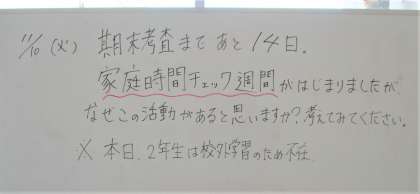 11/10 (火) 期末考査まで あと 14日.
家庭時間チェック週間がはじまりましたが、
なぜこの活動があると思いますか?考えてみてください。
※ 本日、2年生は校外学習のため不在.